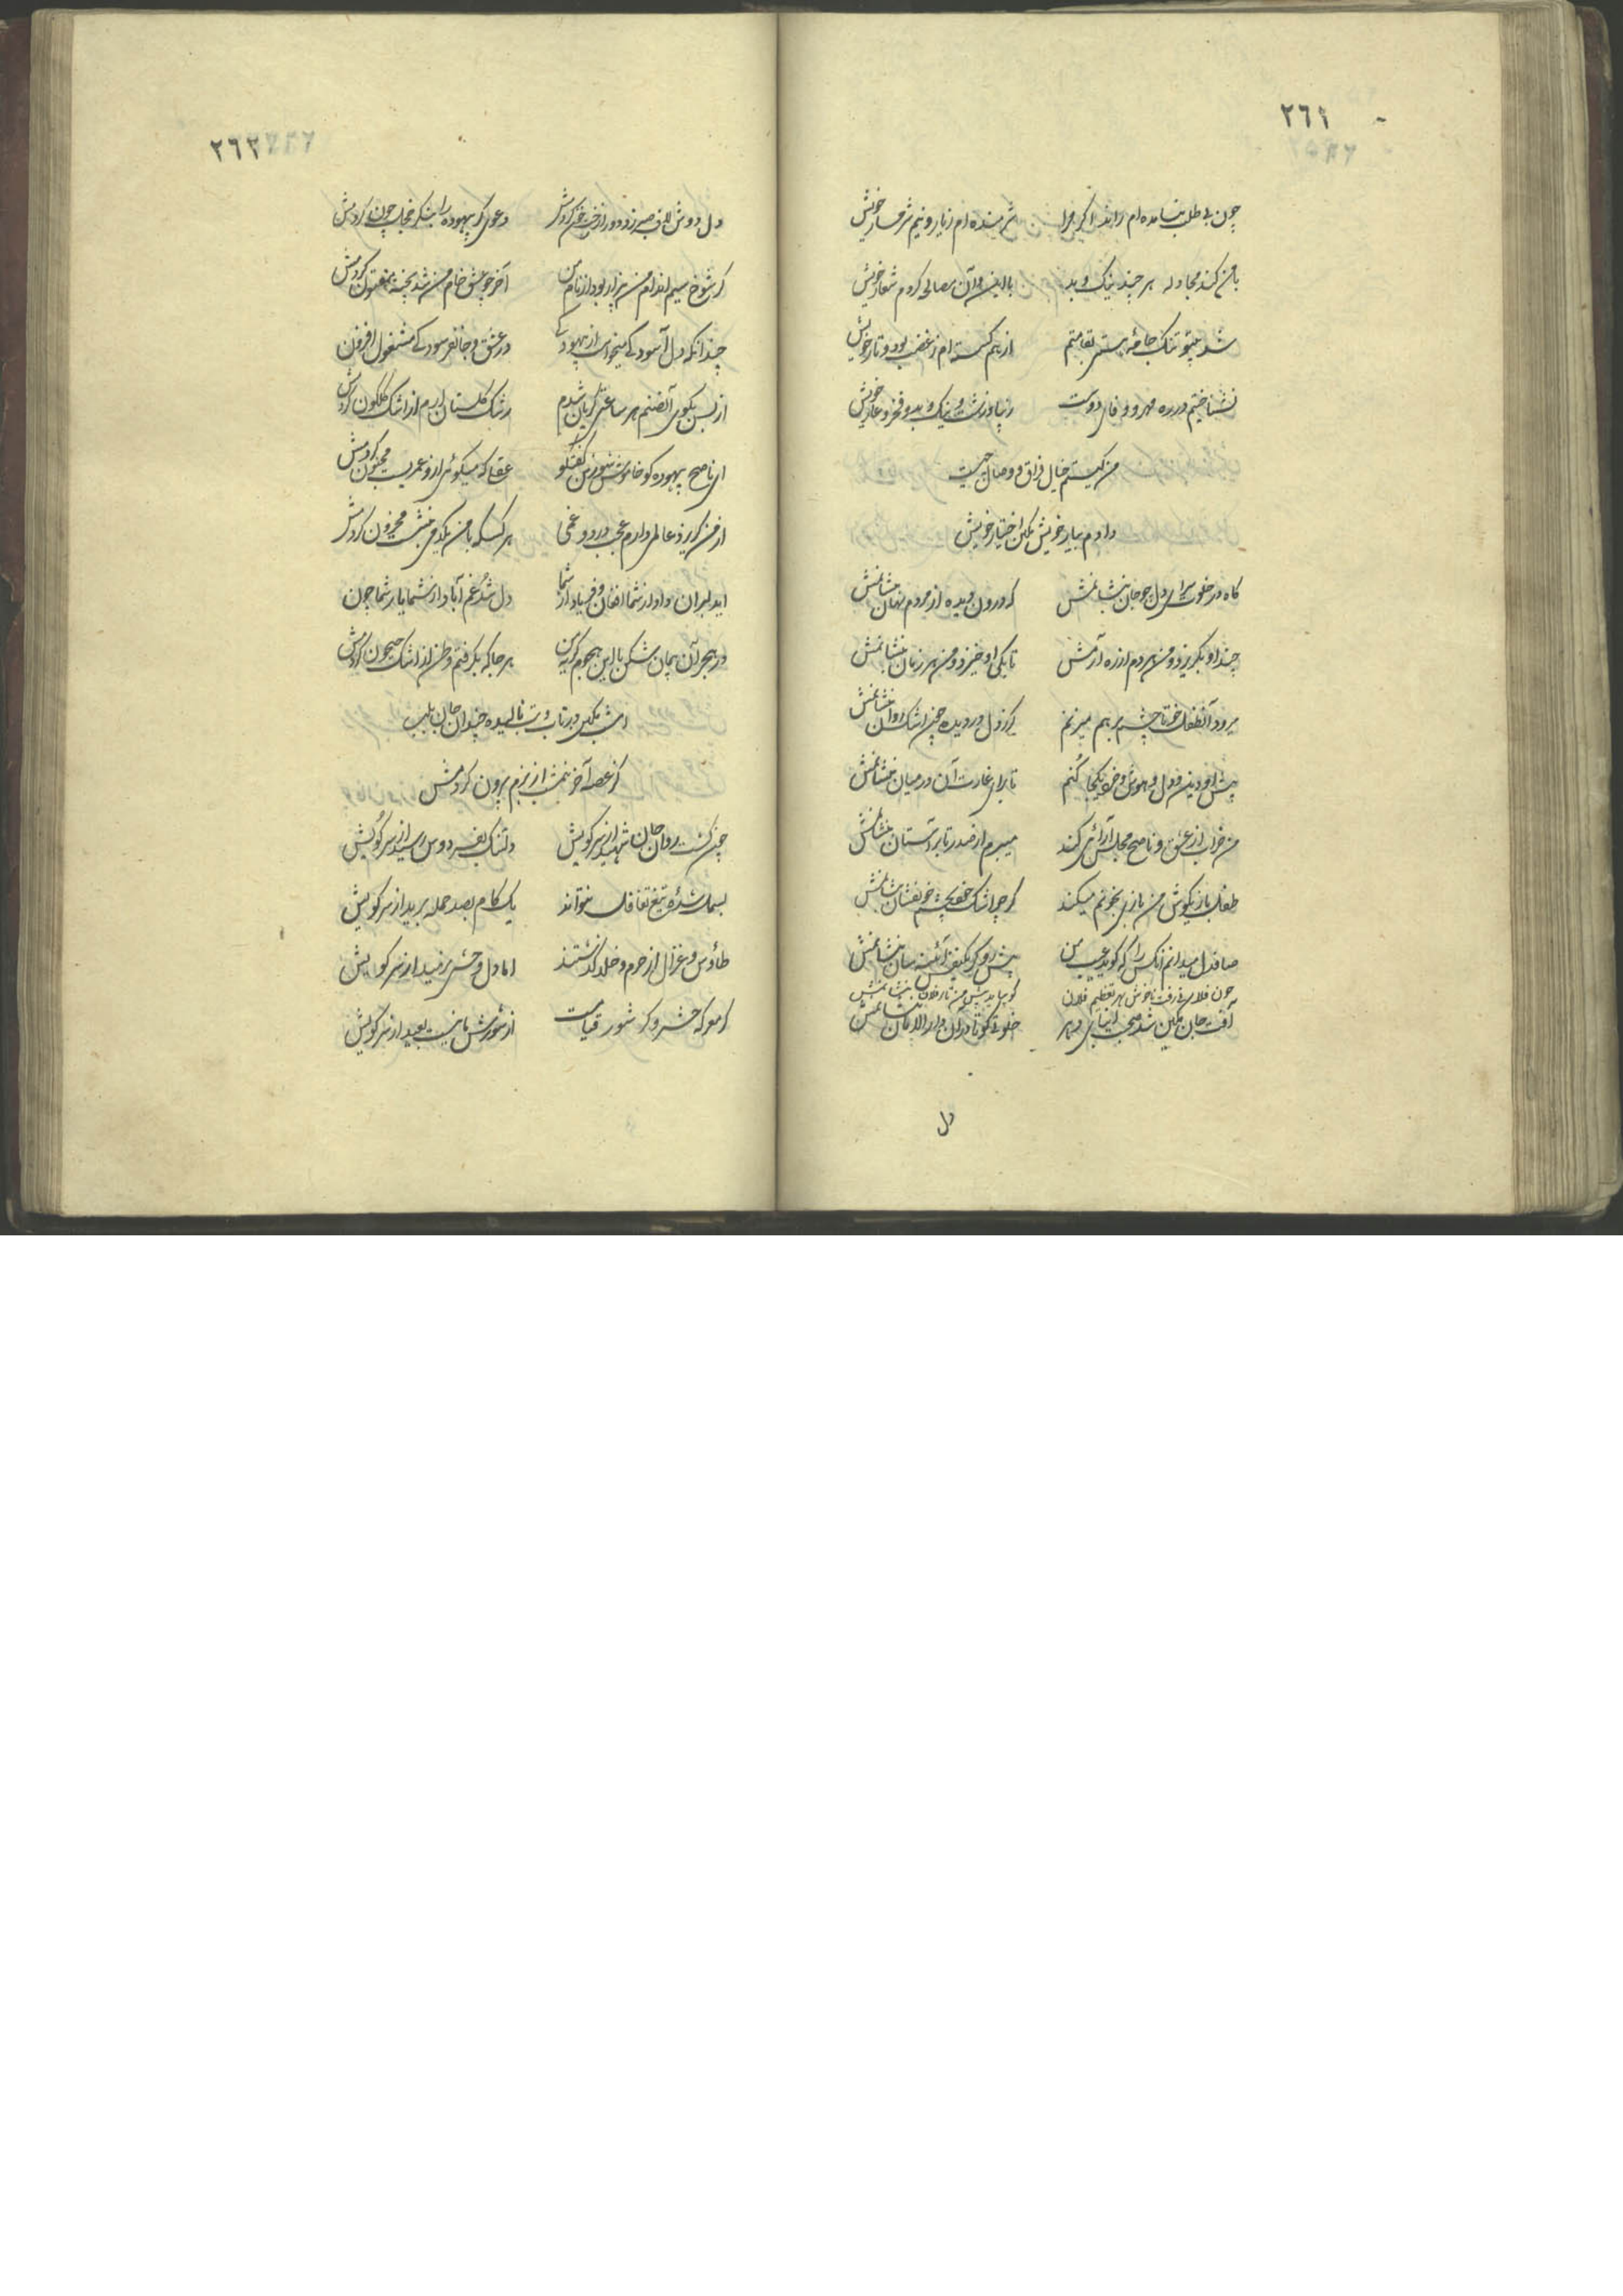 ٢٦١
چون بی طلب نیامده ام راند اگر مرا شرمنده ام زیار و نیم شرمسار خویش
با من کند مجادله هر چند نیک و بد با این و آن مصالح کردم شعار خویش
شد بیتو تنک جامه هستی بقامتم از هم کسسته ام ز غضب پود و تار خویش
نشناختیم در ره مهر و وفای دوست زیبا و زشت و نیک و بد و فخر و عار خویش
من کیستم خیال فراق و وصال چیست
دادم بیار خویش تمکین اختیار خویش
گاه در خلوت سرای دل چو جان بنشانمش که درون دیده از مردم نهان بنشانمش
چند او بگریزد و من هر دم از ره آرمش تا بکی او خیزد و من هر زمان بنشانمش
میرود آنطفل خو تا چشم بر هم میزنم گر ز دل در دیده چون اشک روان بنشانمش
پیش او دین و دل و هوش و خرد یکجا کنم تا برای غارت آن در میان بنشانمش
من خراب از عشق و ناصح مجلس آرائی کند میبرم از صدر تا بر آستان بنشانمش
طفل بازیکوش من بازی بخونم میکند گر چو اشک خود بچشم خونفشان بنشانمش
صافدل میدانم آنکس را که گوید عیب من پیش رو گر بنکفس آئینه سان بنشانمش
چون فلانی رفت ناخوش بهر تعظیم فلان گو بیا پیش من تا بر فلان بنشانمش
آفت جان تمکین شد صحبت ابنای دهر خلوتی کو تا در آن دار الامان بنشانمش
دل
٢٦٢
دل دوش لاف صبر زد دور از رخت خون کردمش دعوی گر بیهوده را بنکر مجاب چون کردمش
گر شوخ سیم اندام من بیزار بود از نام من آخر چو عشق خام من شد پخته مفتون کردمش
چندانکه دل آسودکی میخواست از بهبودکی در عشق و جانفرسودکی مشغول افزون
از بس بکوی آنصنم هر ساعتی گریان شدم رشک گلستان ارم از اشک گلگون کردمش
ای ناصح بیهوده گو خاموش بنشین زین گفتگو عقلی که میگوئی ازو عمریست مجنون کردمش
از من گریزد عالمی دارم عجب درد و غمی هر کسکه با من یکدمی بنشست محزون کردمش
ایدلبران داد از شما افغان و فریاد از شما دل شد غم آباد از شما یا رب شما چون
در هجر آن پیمان شکن با این هجوم گریه من هر جا که بگرفتم وطن از اشک جیحون کردمش
امشب تمکین در تاب و تب نالیده چندان جان بلب
کز غصه آخر نیمشب از بزم بیرون کردمش
چون گشت روان جان شهید از سر کویش دلتنک بفردوس رسید از سر کویش
بسمل شدهٔ تیغ تغافل نتواند یک گام بصد حمله برید از سر کویش
طاوس و غزال از حرم و خلد گذشتند اما دل وحشی نرمید از سر کویش
گر معرکه حشر و گر شور قیامت از شورش ما نیست بعید از سر کویش